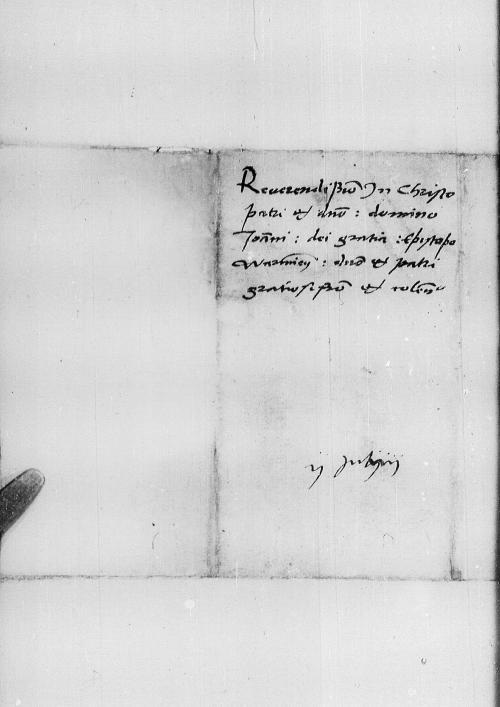 Reverendissimo In Christo
patri et dno : domino
Joanni : dei gratia : Episcopo
Warmien : dno et patri
gratiosissimo et colen
ij Julij